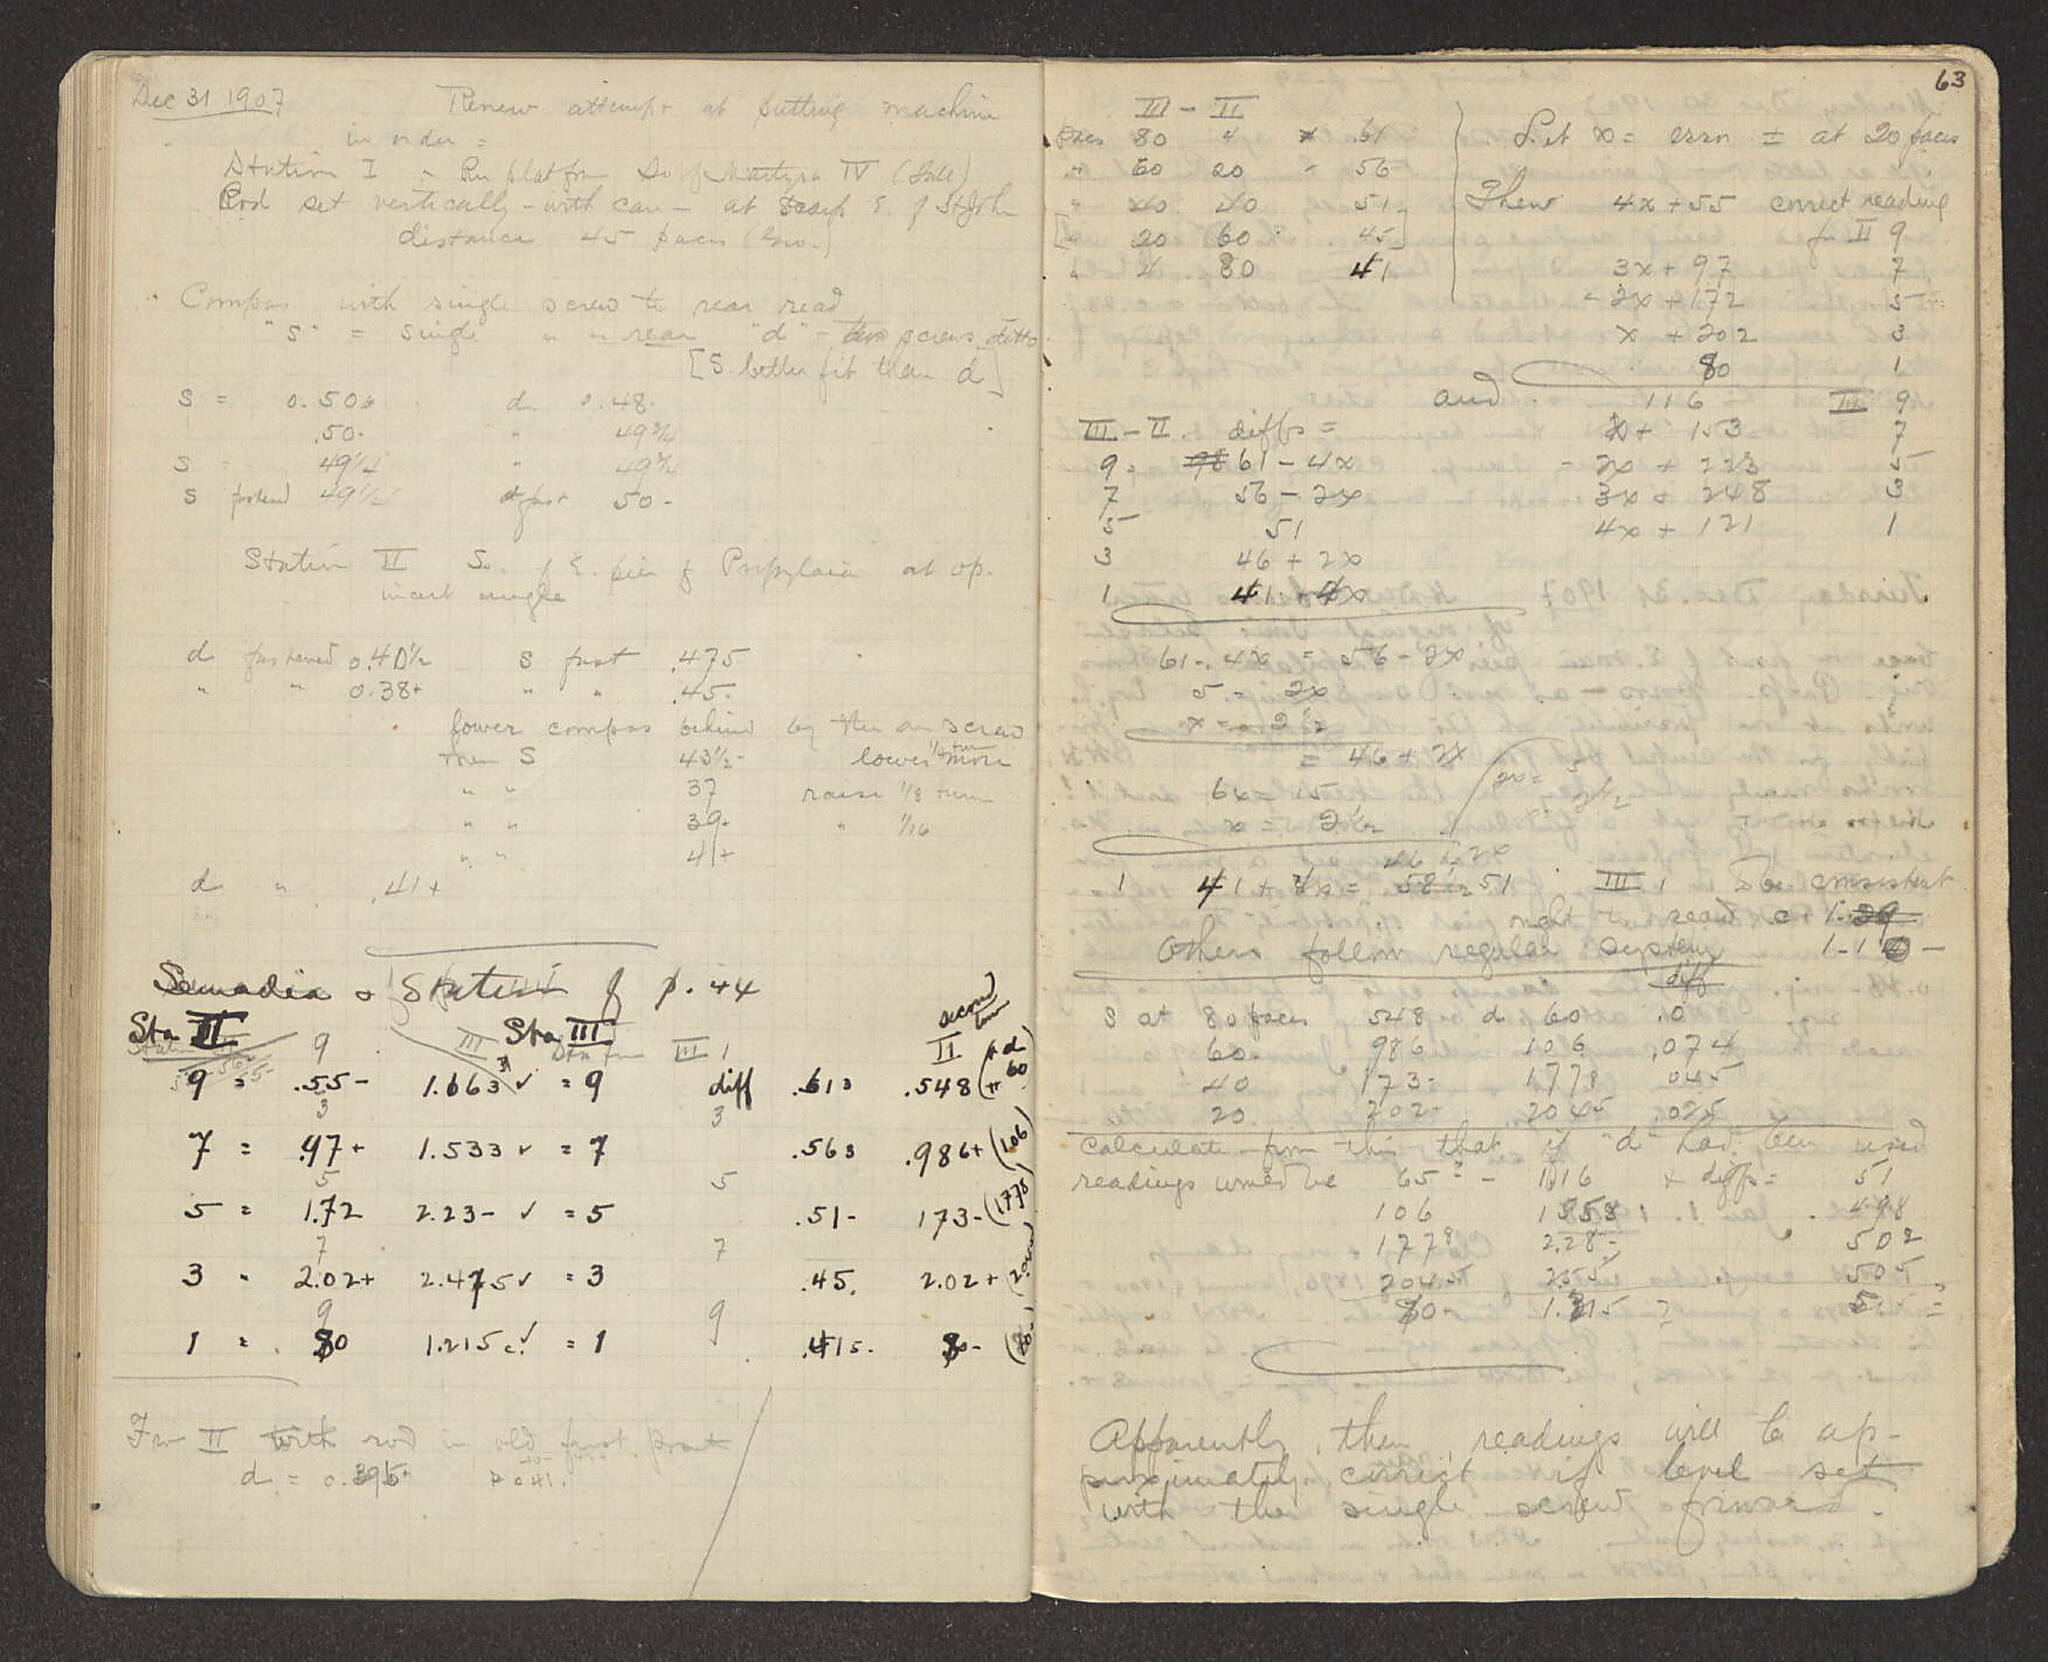 Dec 31 1907 Renew attempt at putting machine
in order =
Station I - platform So of Martyra IV
Rod set vertically - with care - at scarp S. of St John
distance 45 paces
Compass with single screw to rear read
"s" = single " " rear "d" = two screws ditto
[S. better fit than d]
s = 0.50 d. 0.48-
.50- " 49 3/4
s = 49 1/4 " 49 3/4
s fastened 49 1/2 d fast 50-
Station II So. of E. pier of Propylaia at op.
d fastened 0.40 1/2 s fast .475
" " 0.38+ " " .45-
lower compass behind by the one screw
then S 43 1/2- lower 1/4 turn more
" " 37 raise 1/8 turn
" " 39- " 1/16
" " 41+
d " .41+
Station of p. 44
Sta II Sta III second
9 = .55- 1.663 ✓ = 9 diff .61= .548 (60
7 = .97+ 1.533 ✓ = 7 .56= .986+ (106)
5 = 1.72 2.23- ✓ = 5 .51- 173- (1778)
3 " 2.02+ 2.475 ✓ = 3 .45. 2.02+
1 = 80 1.215 c. ✓ = 1 .415- 80-
For II with rod in old
d = 0.395+
63
III - II
80 4 .61
" 60 20 " 56
" 40 40 51
[" 20 60 45]
" 4 80 41
Let x = error ± at 20 paces
Then 4x + 55 correct reading
for II 9
3x + 97 7
2x + 172 5
x + 202 3
80 1
and 116 III 9
x + 153 7
2x + 223 5
3x + 248 3
4x + 121 1
III - II. diffs =
9 = 61 - 4x
7 56 - 2x
5 51
3 46 + 2x
1 41 + 4x
61 - 4x = 56 - 2x
5 = 2x
x = 2 1/2
= 46 + 2x
6x = 15
x = 2 1/2
46 + 2x
1 41 + 4x = 51 III 1 to be consistent
ought to read c. 1.29
Others follow regular system 1-1
diff
S at 80 paces 548 d 60 .0
60- 986 106 .074
40 173- 1778 045
20 202- 2045 .025
Calculate from this that if "d" had been used
readings would be 65 - 1116 & diffs = 51
106 1558 498
1778 2.28- 502
2045 255 505
80- 1.215
Apparently, then, readings will be ap-
proximately correct if level set
with the single screw forward.